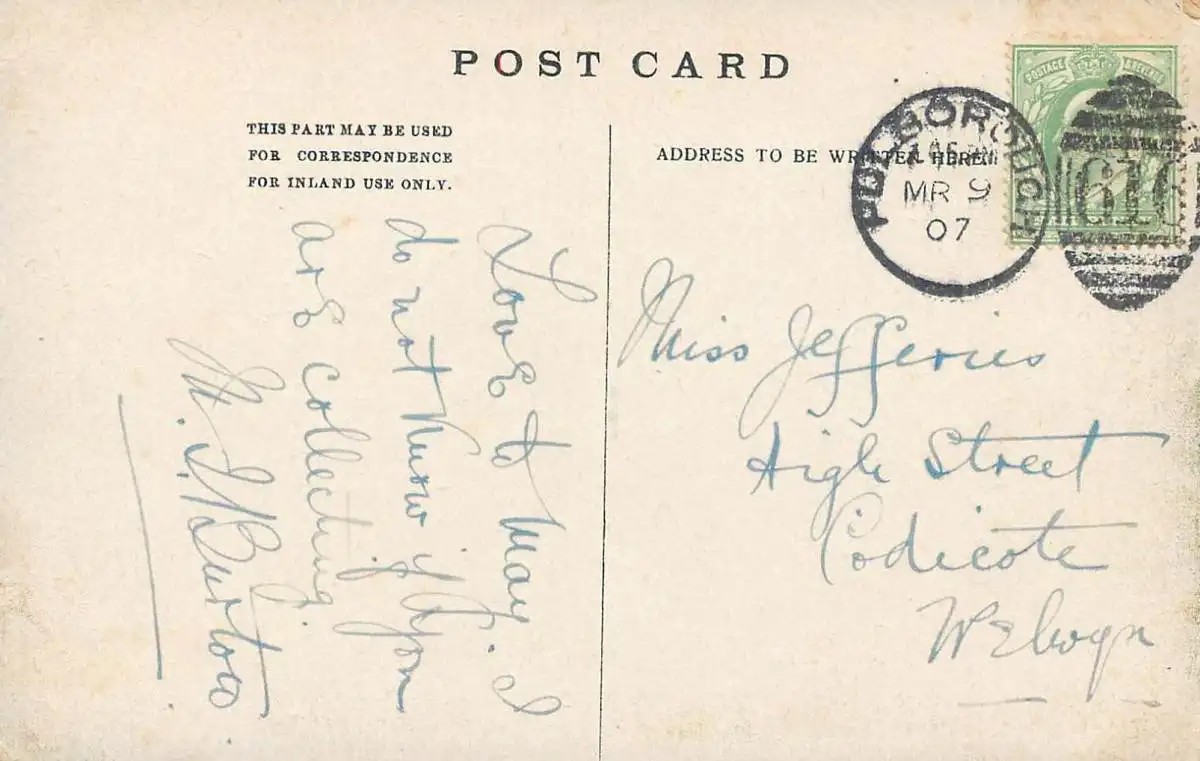 POST CARD
THIS PART MAY BE USED
FOR CORRESPONDENCE
FOR INLAND USE ONLY.
ADDRESS TO BE WRITTEN HERE.
POSTAGE
PULBOROUGH
MR 9
07
616
Love to May. I
do not know if you
are collecting
M. J. Burton
Miss Jefferies
High Street
Codicote
Welwyn